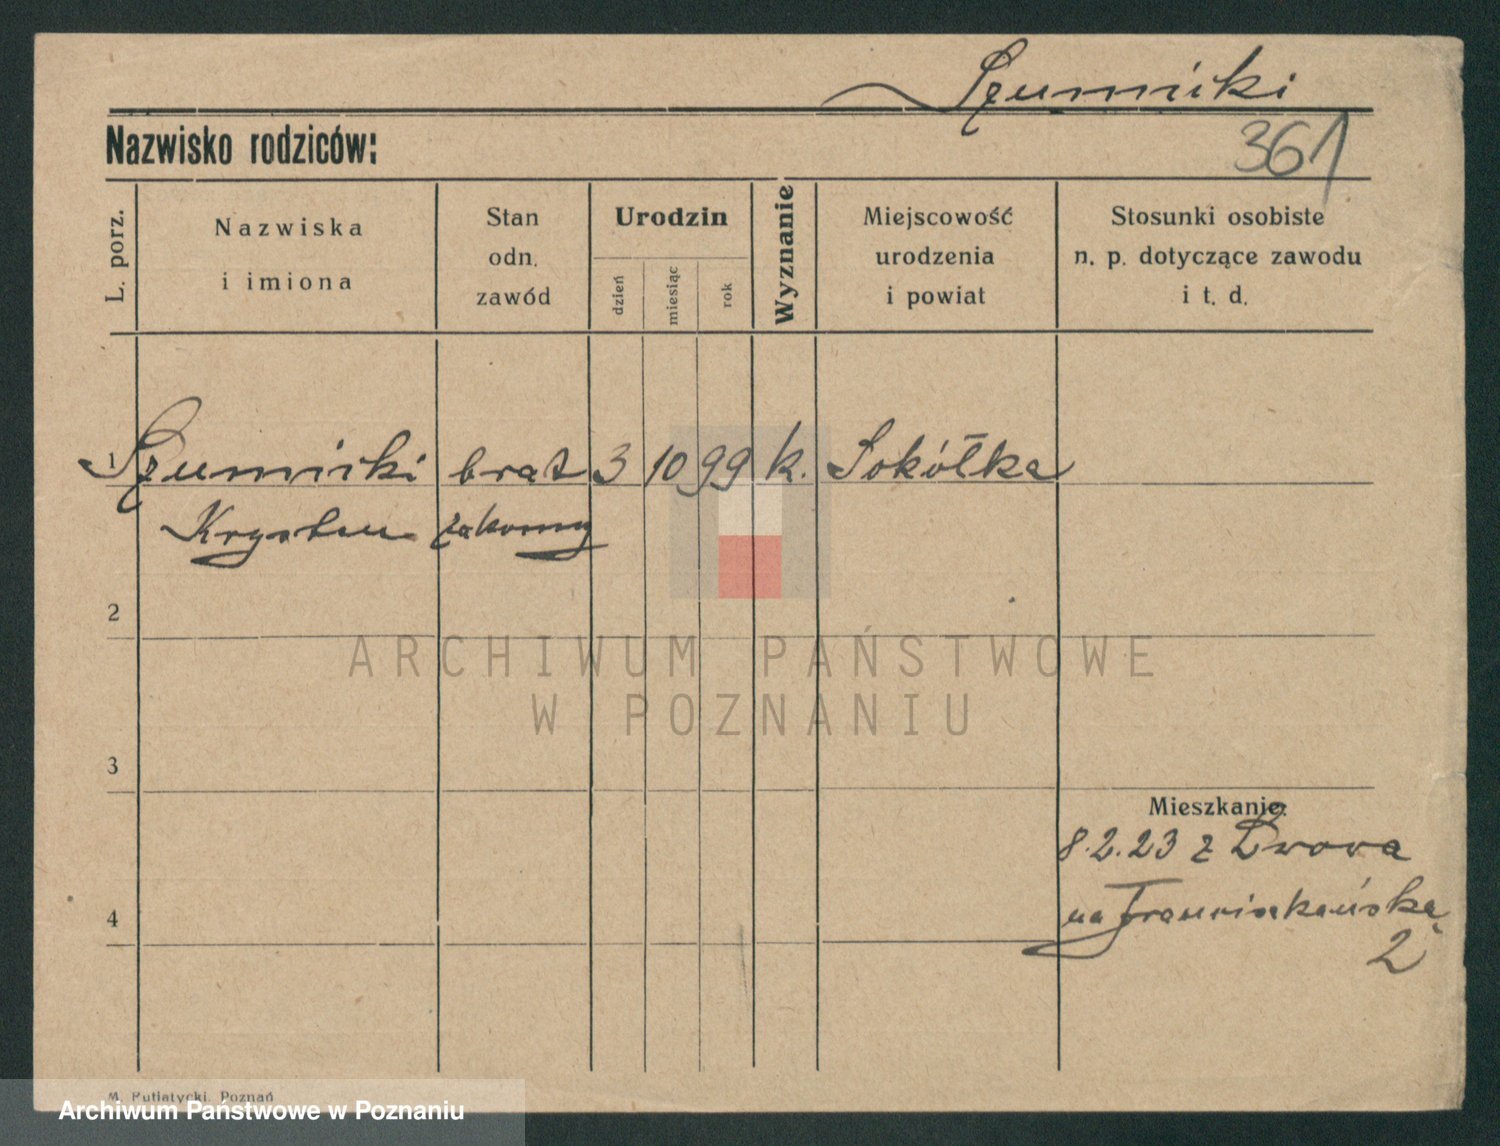 Szumicki
Nazwisko rodziców:
361
L. porz.
Nazwiska
i imiona
Stan
odn.
zawód
Urodzin
dzień
miesiąc
rok
Wyznanie
Miejscowość
urodzenia
i powiat
Stosunki osobiste
n. p. dotyczące zawodu
i t. d.
1 Szumicki brat 3 10 99 k. Sokółka
zakonny
2
3
4
Mieszkanie:
8.2.23 z Lwowa
na Franciszkańską
2
M. Putiatycki, Poznań
ARCHIWUM PAŃSTWOWE
W POZNANIU
Archiwum Państwowe w Poznaniu